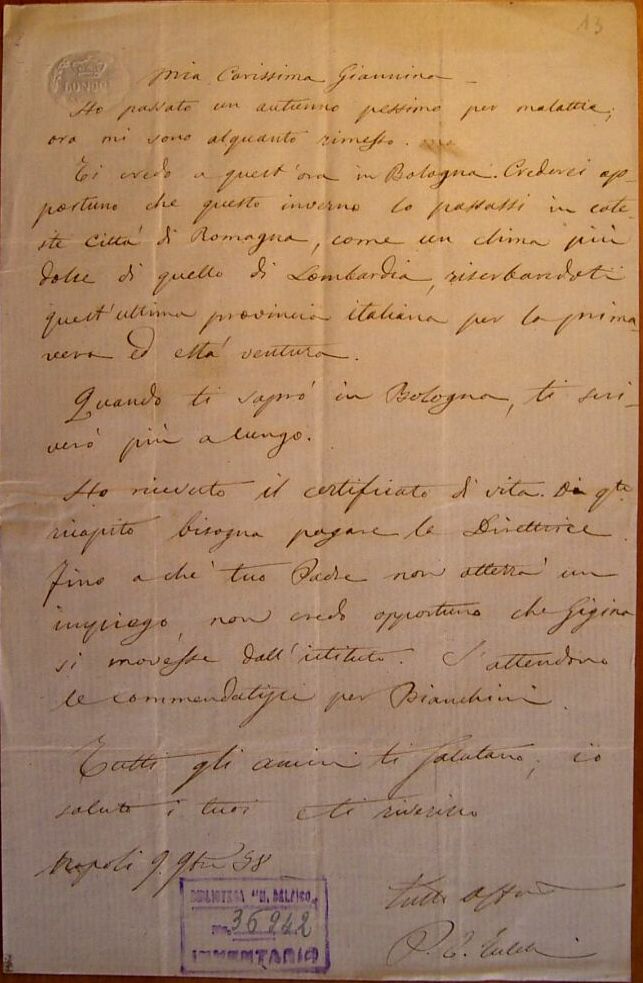 13
Mia Carissima Giannina
Ho passato un autunno pessimo per malattia;
ora mi sono alquanto rimesso.
Ti credo a quest'ora in Bologna. Crederei op-
portuno che questo inverno lo passassi in cote
ste città di Romagna, come un clima più
dolce di quello di Lombardia, riserbandoti
quest'ultima provincia italiana per la prima-
vera ed està ventura.
Quando ti saprò in Bologna, ti scri-
verò più a lungo.
Ho ricevuto il certificato di vita. Da qto
ricapito bisogna pagare la Direttrice.
Fino a chè tuo Padre non otterrà un
impiego, non credo opportuno che Gigina
si movesse dall'istituto. S'attendono
le commendatizie per Bianchini.
Tutti gli amici ti salutano; io
saluto i tuoi e ti riverisco
Napoli 9. 9bre 58
Tutto affmo
BIBLIOTECA "M. DELFICO"
No. 36242
INVENTARIO